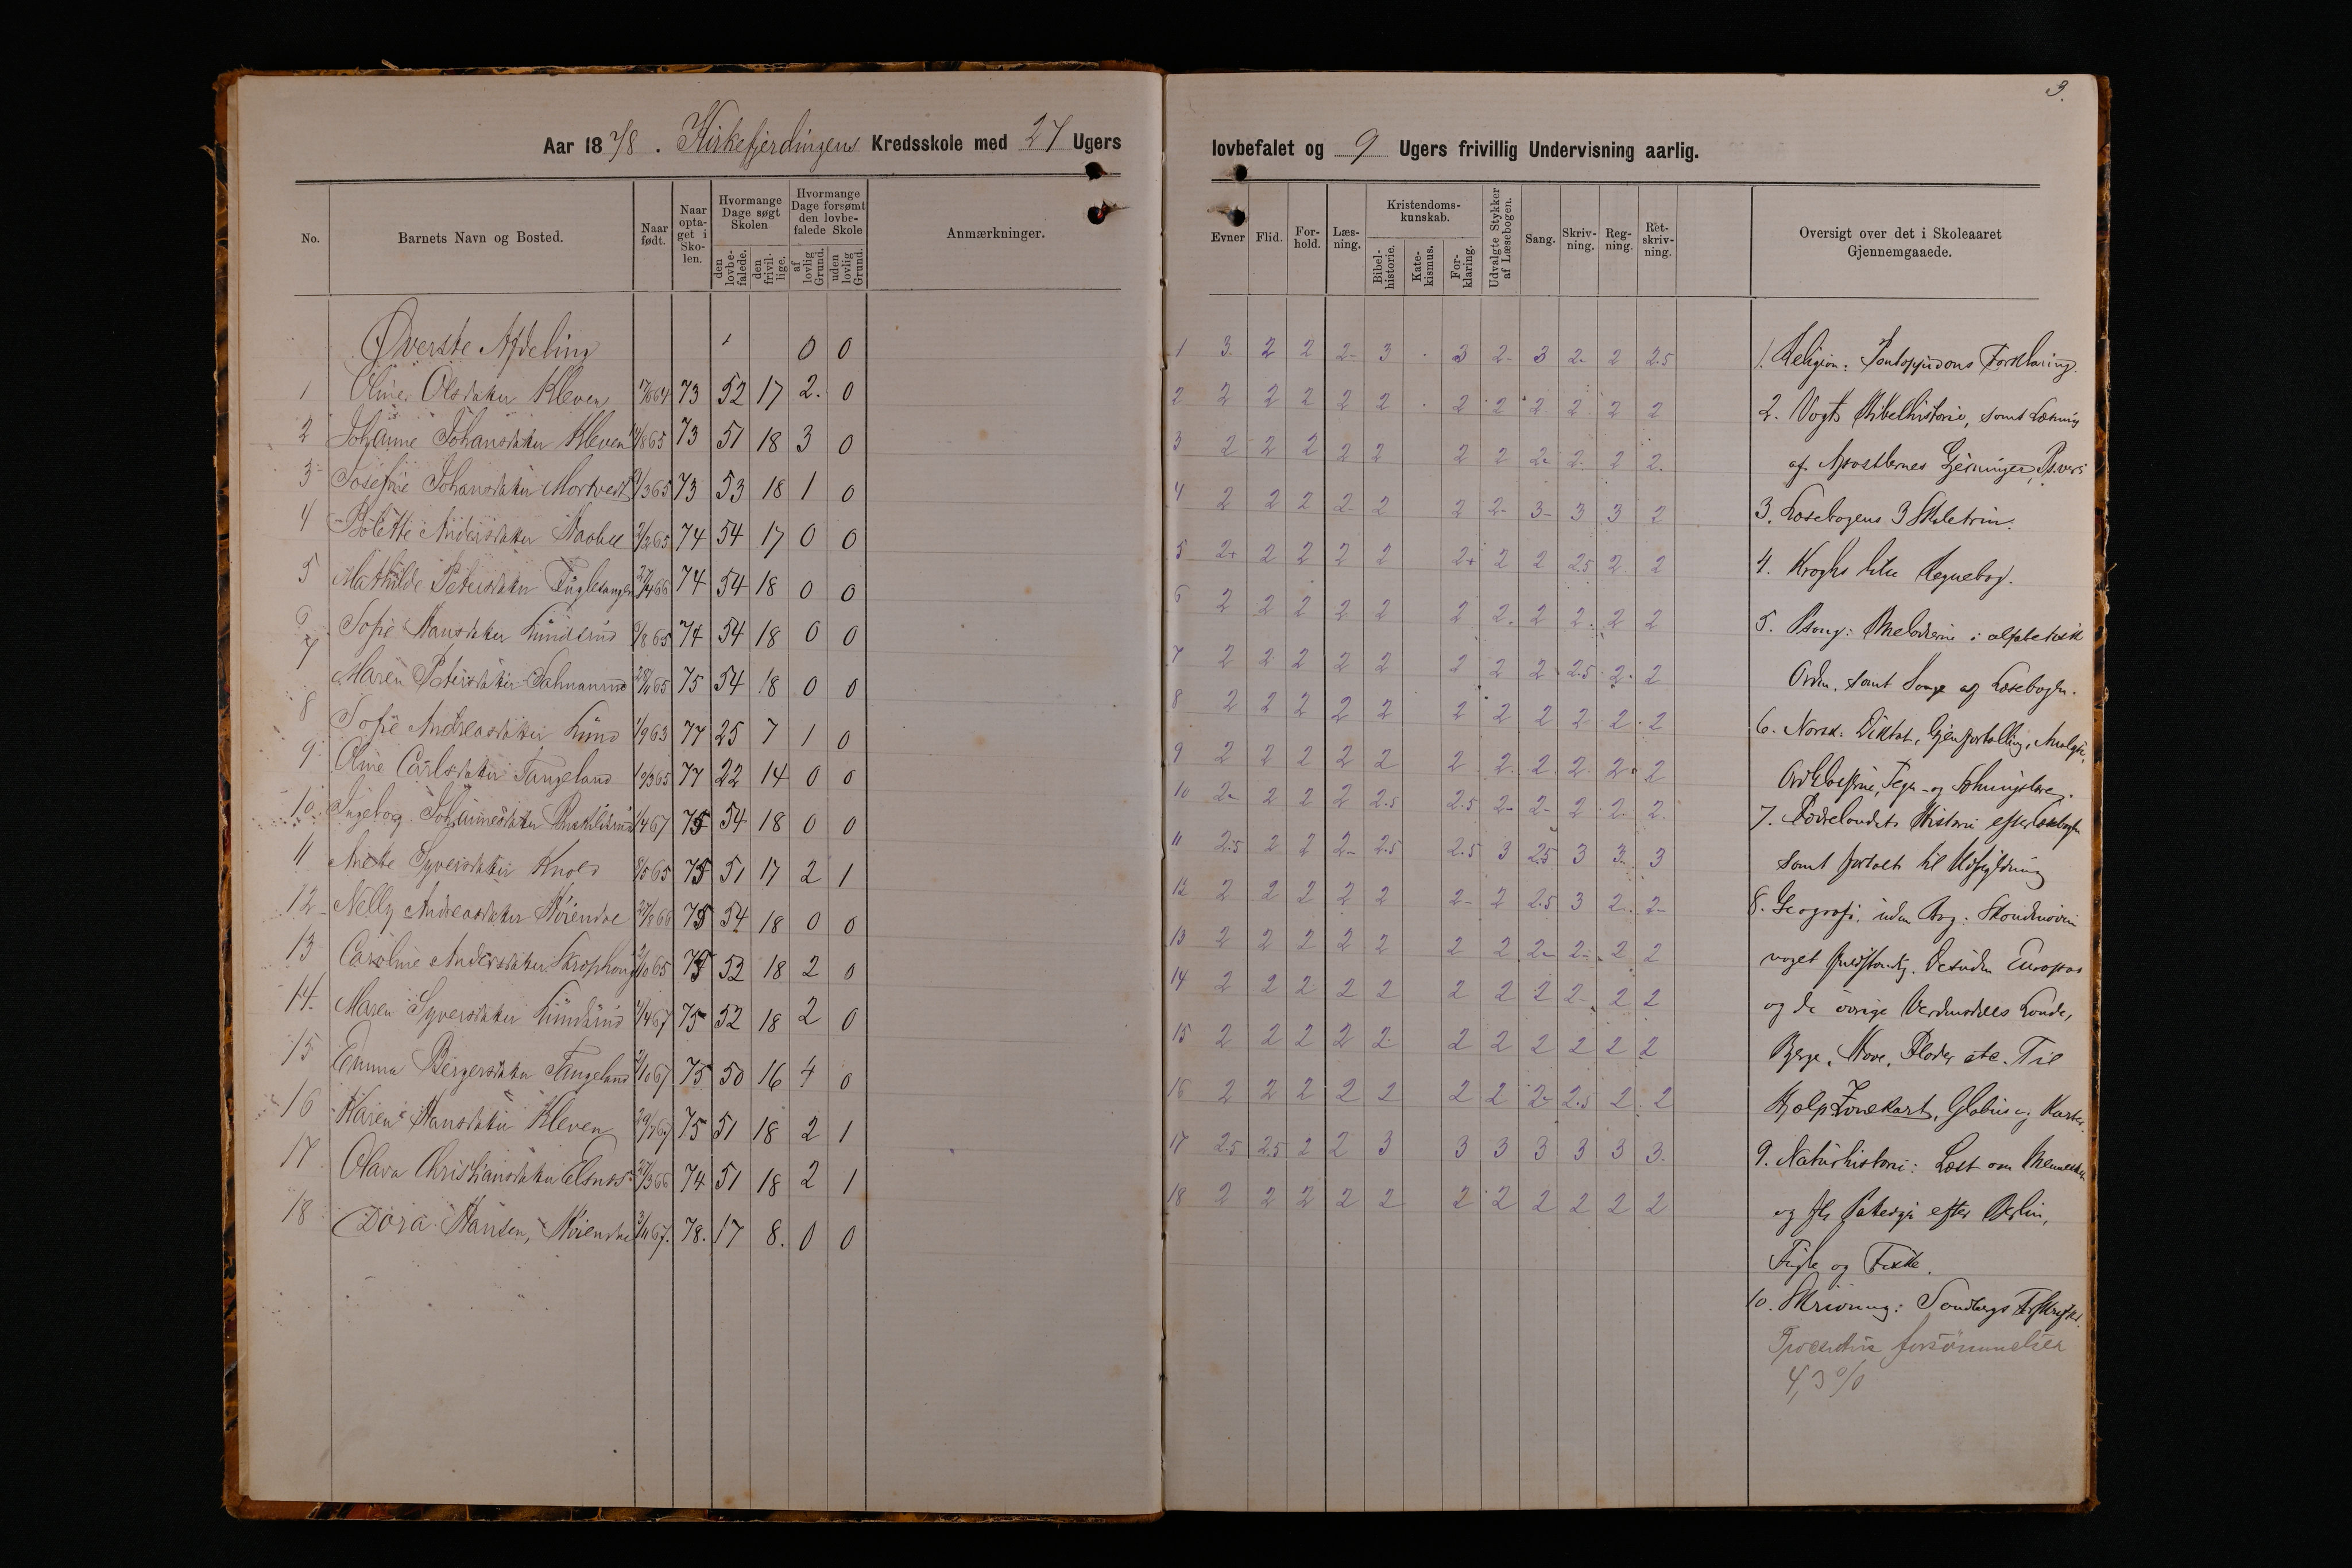 3.
Aar 1878. Kirkefjerdingens Kredsskole med 27 Ugers
lovbefalet og 9 Ugers frivillig Undervisning aarlig.
No. Barnets Navn og Bosted. Naar født. Naar optaget i Skolen. Hvormange Dage søgt Skolen Hvormange Dage forsømt den lovbefalede Skole Anmærkninger.
den lovbefalede. den frivillige. af lovlig Grund. uden lovlig Grund.
Øverste Afdeling 0 0
1 Oline Olsdatter Kleven 73 52 17 2. 0
2 Johanne Johansdatter Kleven 73 51 18 3 0
3 Josefine Johansdatter Mortvedt 73 53 18 1 0
4 Bolette Andersdatter 74 54 17 0 0
5 Mathilde Petersdatter Fuglesangen 74 54 18 0 0
6 Sofie Hansdatter 74 54 18 0 0
7 Maren Petersdatter 75 54 18 0 0
8 Sofie Andreasdatter Lund 1/9 63 77 25 7 1 0
9 Oline Carlsdatter Tangeland 77 22 14 0 0
10 Ingeborg Johannesdatter 1/4 67 75 54 18 0 0
11 Anette Syversdatter Knold 75 51 17 2 1
12 Nelly Andreasdatter 75 54 18 0 0
13 Caroline Andersdatter 75 52 18 2 0
14. Maren Syversdatter 75 52 18 2 0
15 Emma Bergersdatter Tangeland 75 50 16 4 0
16 Karen Hansdatter Kleven 75 51 18 2 1
17 Olava Christiansdatter Elsnes 74 51 18 2 1
18 Dora Hansen, 78. 17 8. 0 0
Evner Flid. Forhold. Læsning. Kristendomskunskab. Udvalgte Stykker af Læsebogen. Sang. Skrivning. Regning. Retskrivning. Oversigt over det i Skoleaaret Gjennemgaaede.
Bibelhistorie. Katekismus. Forklaring.
1 3 2 2 2- 3 3 2- 3 2- 2 2.5
2 2 2 2 2 2 2 2 2 2 2 2
3 2 2 2 2 2 2 2 2- 2 2 2
4 2 2 2 2- 2 2 2- 3- 3 3 2
5 2+ 2 2 2 2 2+ 2 2 2.5 2 2
6 2 2 2 2 2 2 2 2 2 2 2
7 2 2 2 2 2 2 2 2 2.5 2 2
8 2 2 2 2 2 2 2 2 2 2 2
9 2 2 2 2 2 2 2 2 2 2 2
10 2- 2 2 2 2.5 2.5 2- 2- 2 2 2
11 2.5 2 2 2- 2.5 2.5 3 2.5 3 3 3
12 2 2 2 2 2 2- 2 2.5 3 2 2-
13 2 2 2 2 2 2 2 2- 2- 2 2
14 2 2 2 2 2 2 2 2 2- 2 2
15 2 2 2 2 2 2 2 2 2 2 2
16 2 2 2 2 2 2 2 2- 2.5 2 2
17 2.5 2.5 2 2 3 3 3 3 3 3 3
18 2 2 2 2 2 2 2 2 2 2 2
1. Religion: Pontoppidans Forklaring.
2. Vogts Bibelhistorie, samt Læsning
af Apostlernes Gjerninger,
3. Læsebogens 3 Skoletrin.
4. Kroghs lille Regnebog.
5. Psang: Melodierne i alfabetisk
Orden, samt Sange af Læsebogen.
6. Norsk: Diktat, Gjenfortælling, Analyse,
Ordklasserne, Tegn- og Sætningslære.
7. Fædrelandets Historie efter Læsebogen
samt fortalt til Udfyldning
8. Geografi: uden Bog: Skandinavien
noget fuldstændig. Desuden Europas
og de övrige Verdensdeles Lande,
Berge, Have, Floder etc. Til
Hjælp Zonekart, Globus og Karter.
9. Naturhistorie: Læst om Mennesket
og fler Pattedyr efter Berlin,
Fugle og Fiske.
10. Skrivning: Sandbergs Forskrifter.
forsömmelser
4,3 %